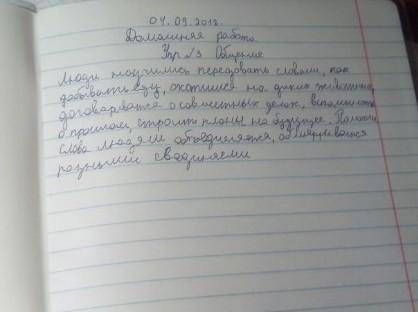 04.09.2012.
Домашняя работа
Упр №3 Общение
Люди научились передовать словами, как
добывать еду, охотится на диких животных,
договариватся о совместных делах, вспоминать
о прошлом, строить планы на будущее. Помогли
слова людям объеденятся, обмениваться
разными свединями